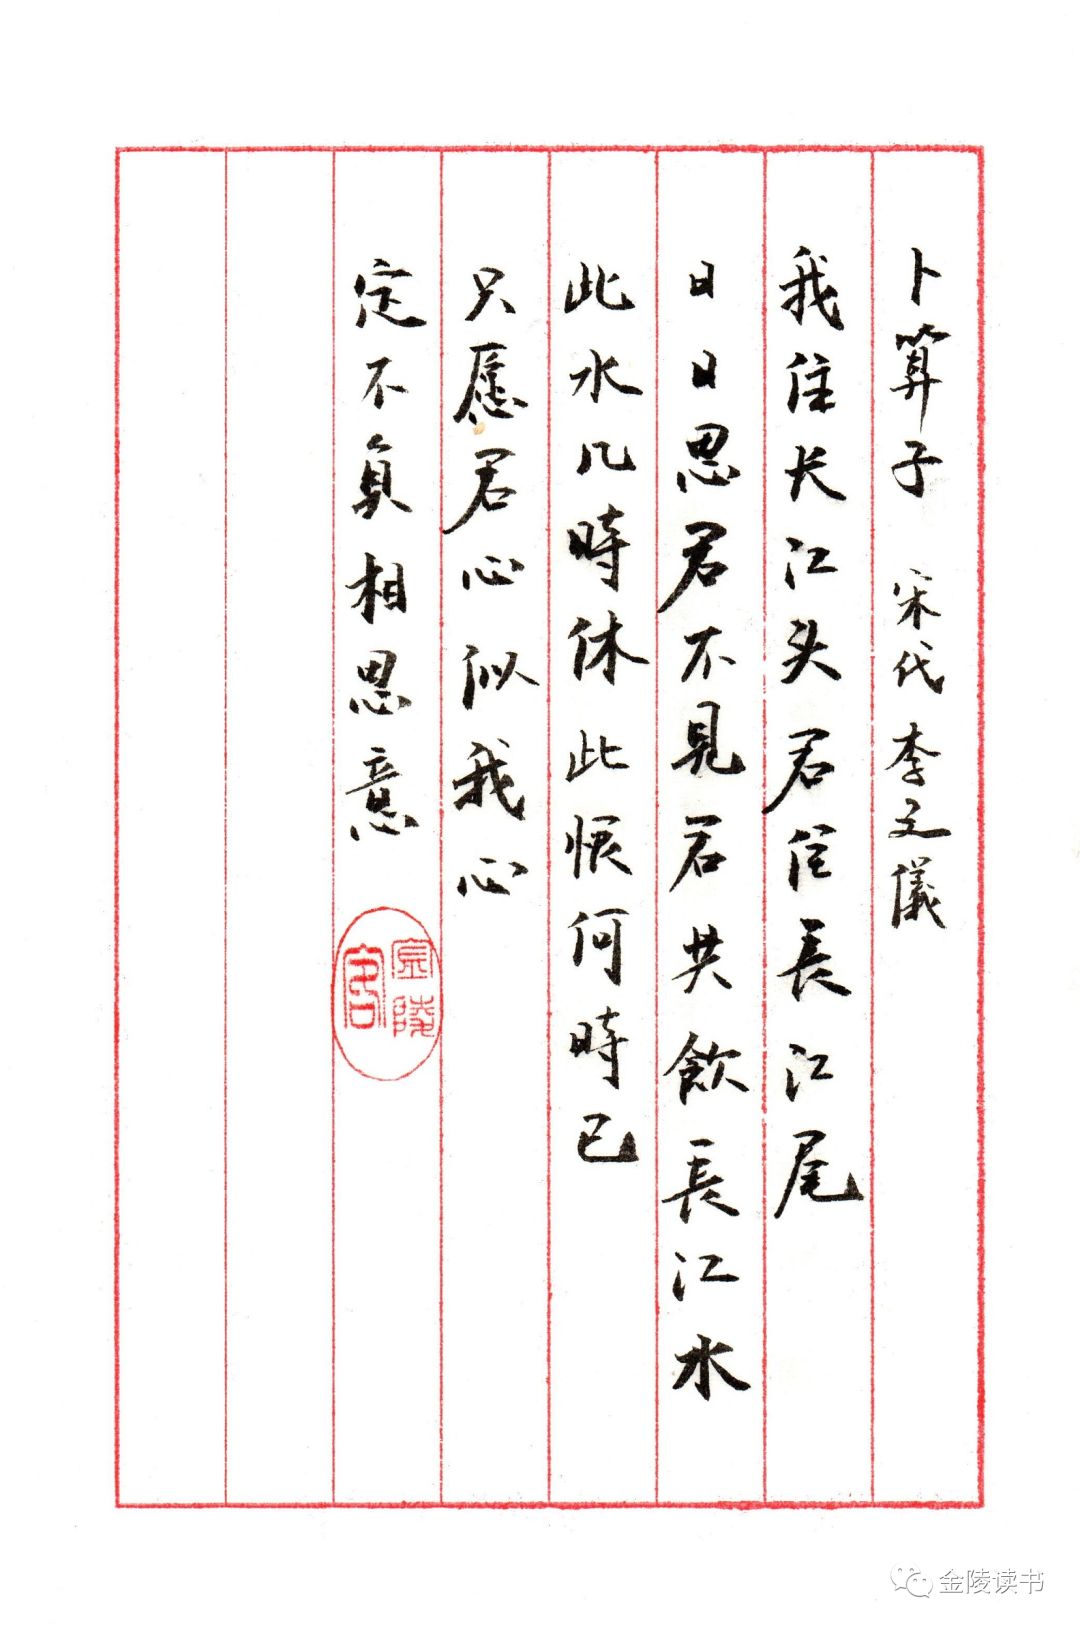 卜算子 宋代 李之儀
我住长江头君住長江尾
日日思君不見君共飲長江水
此水几時休此恨何時已
只愿君心似我心
定不負相思意
金陵客
金陵读书